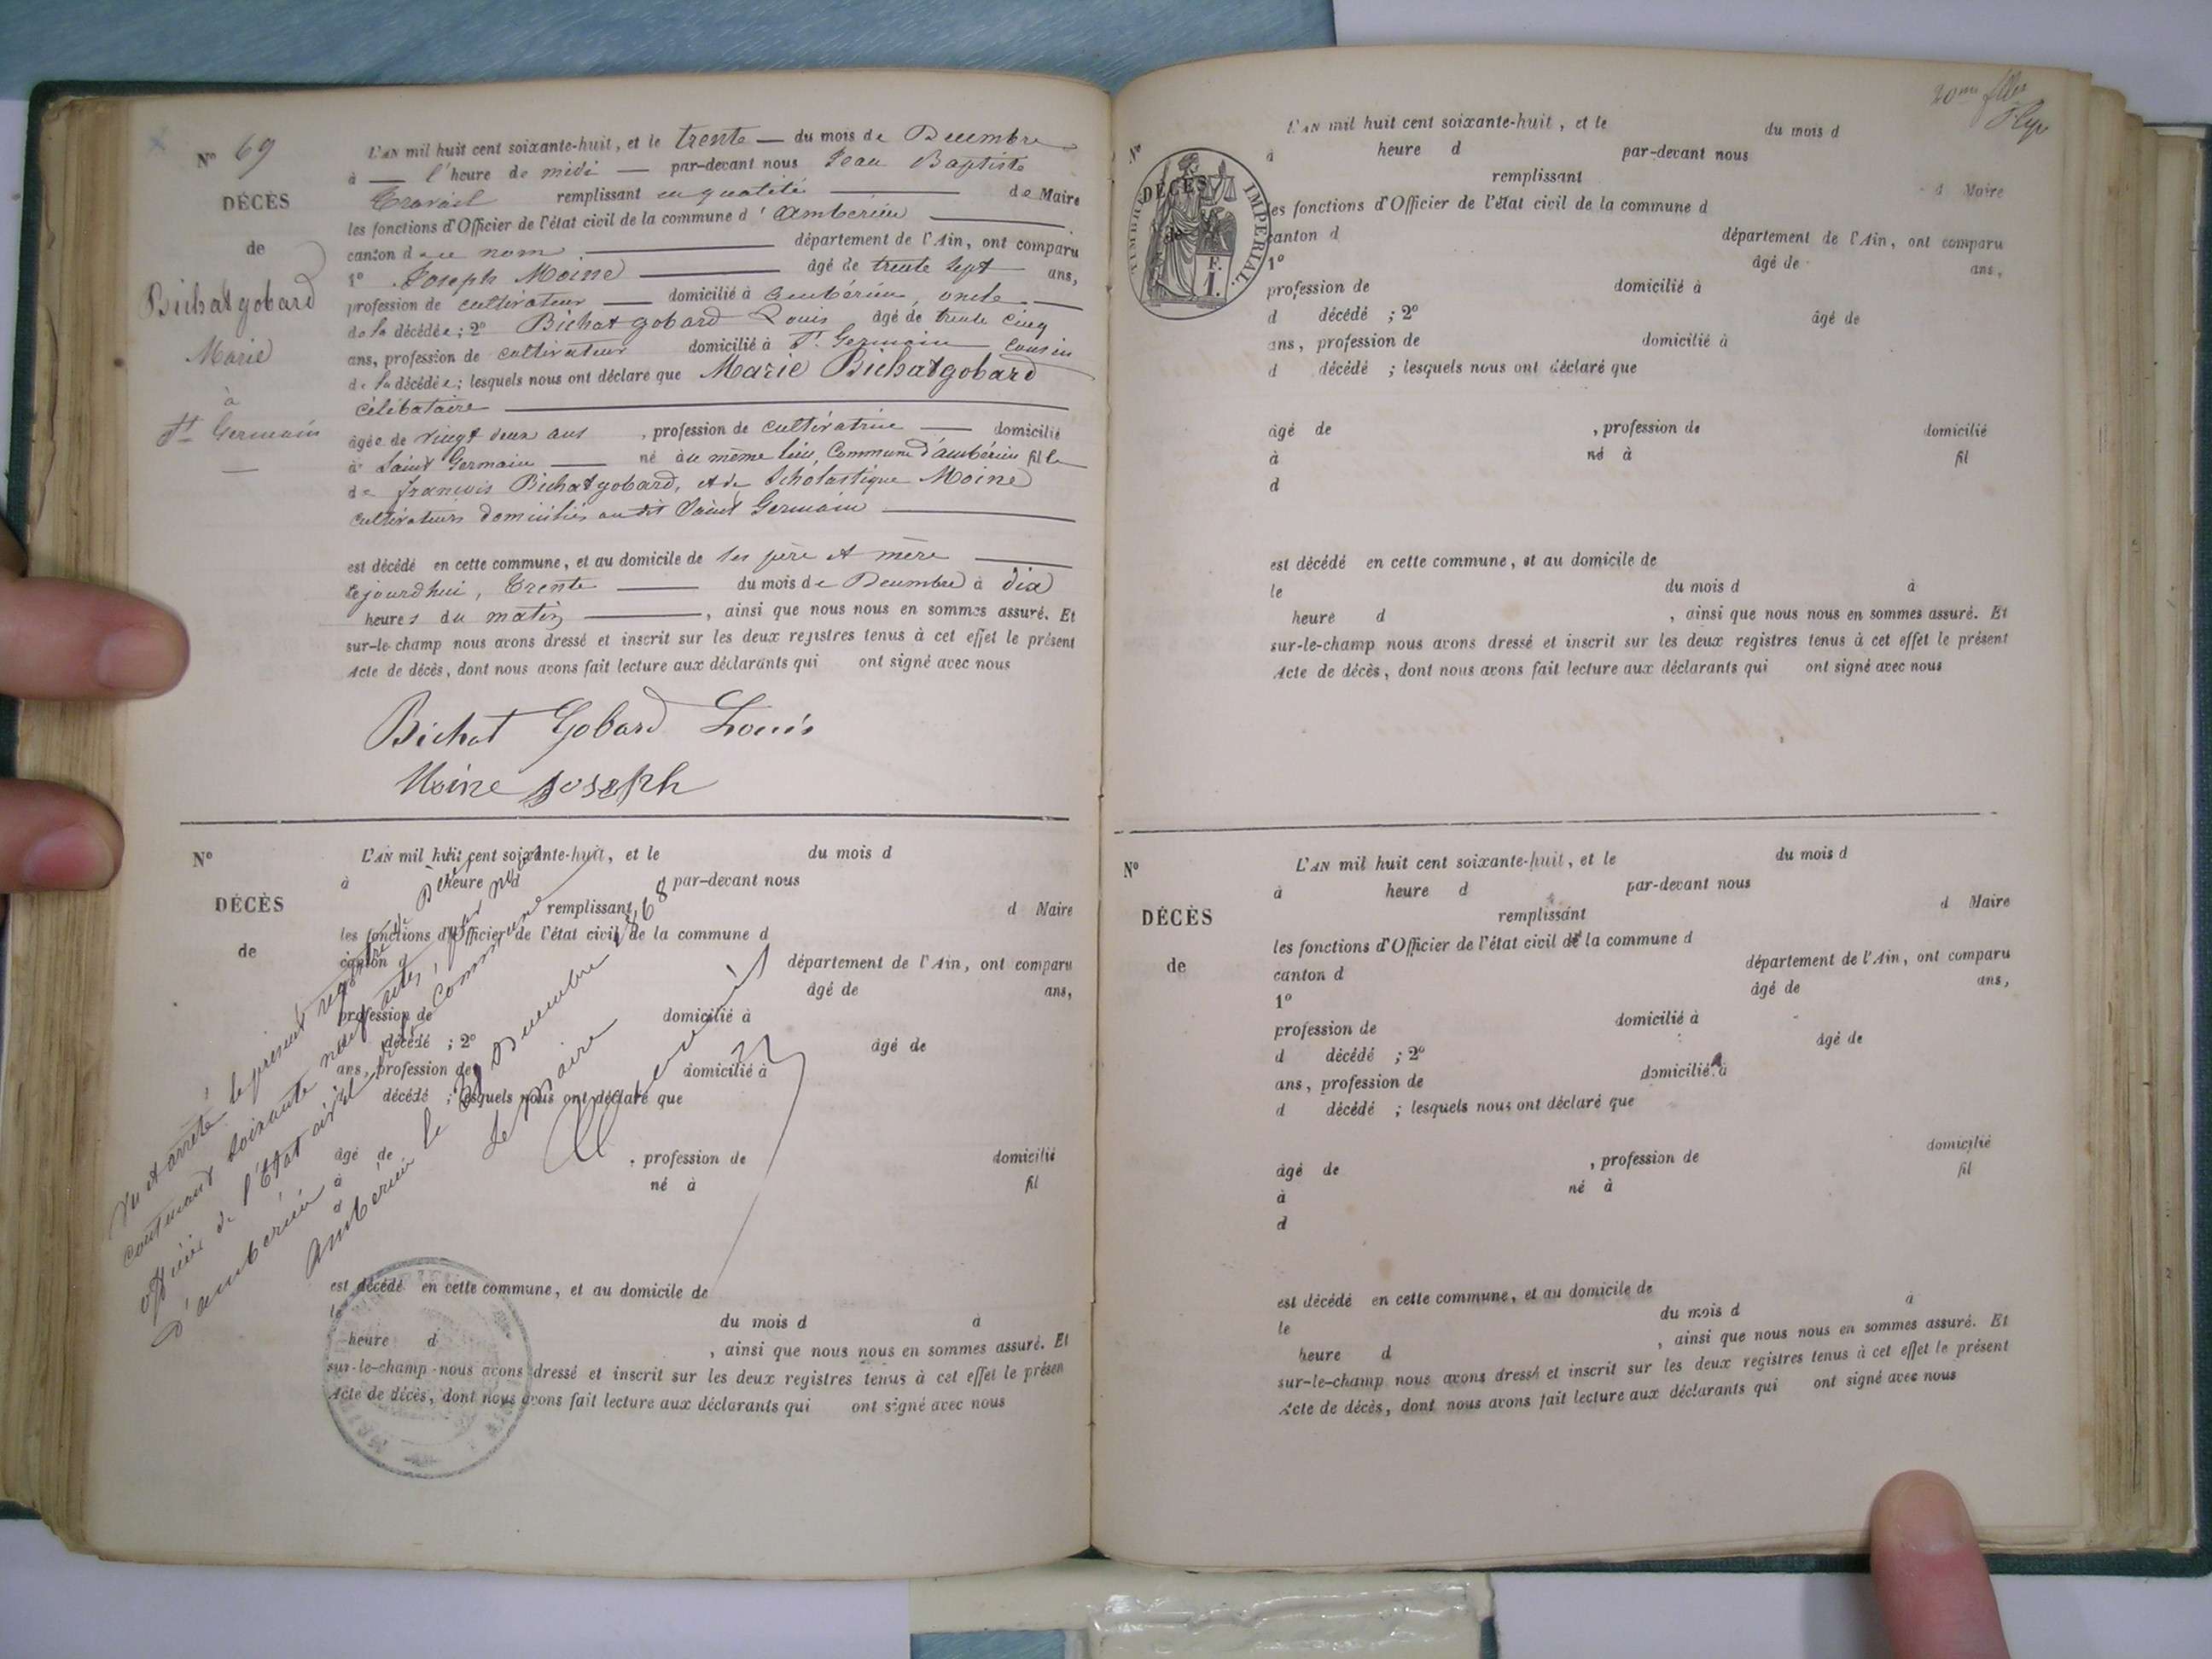 N° 69
DÉCÈS
de
Bichatgobard
Marie
à
St Germain
L'AN mil huit cent soixante-huit, et le trente du mois de Décembre
à l'heure de midi par-devant nous Jean Baptiste
remplissant en qualité de Maire
les fonctions d'Officier de l'état civil de la commune d'Ambérieu
canton de ce nom département de l'Ain, ont comparu
1° Joseph Moine âgé de trente sept ans,
profession de cultivateur domicilié à Ambérieu, oncle
de la décédée; 2° Bichat gobard Louis âgé de trente cinq
ans, profession de cultivateur domicilié à St Germain Cousin
de la décédée; lesquels nous ont déclaré que Marie Bichatgobard
célibataire
âgée de vingt deux ans, profession de cultivatrice domicilié
à Saint Germain né au même lieu, Commune d'ambérieu fille
de françois Bichatgobard, et de Scholastique Moine
cultivateurs domiciliés au dit Saint Germain
est décédé en cette commune, et au domicile de ses père et mère
cejourdhui, trente du mois de Décembre à dix
heures du matin, ainsi que nous nous en sommes assuré. Et
sur-le-champ nous avons dressé et inscrit sur les deux registres tenus à cet effet le présent
Acte de décès, dont nous avons fait lecture aux déclarants qui ont signé avec nous
Bichat Gobard Louis
Moine joseph
N°
DÉCÈS
de
L'AN mil huit cent soixante-huit, et le du mois d
à heure d par-devant nous
remplissant d Maire
les fonctions d'Officier de l'état civil de la commune d
canton d département de l'Ain, ont comparu
âgé de ans,
profession de domicilié à
décédé ; 2° âgé de
ans, profession de domicilié à
décédé ; lesquels nous ont déclaré que
âgé de , profession de domicilié
à né à fil
d
est décédé en cette commune, et au domicile de
le du mois d à
heure d , ainsi que nous nous en sommes assuré. Et
sur-le-champ nous avons dressé et inscrit sur les deux registres tenus à cet effet le présen
Acte de décès, dont nous avons fait lecture aux déclarants qui ont signé avec nous
Vu et arrêté le présent registre de Décès
contenant soixante neuf actes, par nous
officier de l'Etat civil de la Commune
d'amberieu
Ambérieu le 31 Decembre 1868
Le Maire
20me
N°
DÉCÈS
de
TIMBRE IMPERIAL.
1 F.
L'AN mil huit cent soixante-huit, et le du mois d
à heure d par-devant nous
remplissant d Maire
les fonctions d'Officier de l'état civil de la commune d
canton d département de l'Ain, ont comparu
1° âgé de ans,
profession de domicilié à
d décédé ; 2° âgé de
ans, profession de domicilié à
d décédé ; lesquels nous ont déclaré que
âgé de , profession de domicilié
à né à fil
d
est décédé en cette commune, et au domicile de
le du mois d à
heure d , ainsi que nous nous en sommes assuré. Et
sur-le-champ nous avons dressé et inscrit sur les deux registres tenus à cet effet le présent
Acte de décès, dont nous avons fait lecture aux déclarants qui ont signé avec nous
N°
DÉCÈS
de
L'AN mil huit cent soixante-huit, et le du mois d
à heure d par-devant nous
remplissant d Maire
les fonctions d'Officier de l'état civil de la commune d
canton d département de l'Ain, ont comparu
1° âgé de ans,
profession de domicilié à
d décédé ; 2° âgé de
ans, profession de domicilié à
d décédé ; lesquels nous ont déclaré que
âgé de , profession de domicilié
à né à fil
d
est décédé en cette commune, et au domicile de
le du mois d à
heure d , ainsi que nous nous en sommes assuré. Et
sur-le-champ nous avons dressé et inscrit sur les deux registres tenus à cet effet le présent
Acte de décès, dont nous avons fait lecture aux déclarants qui ont signé avec nous